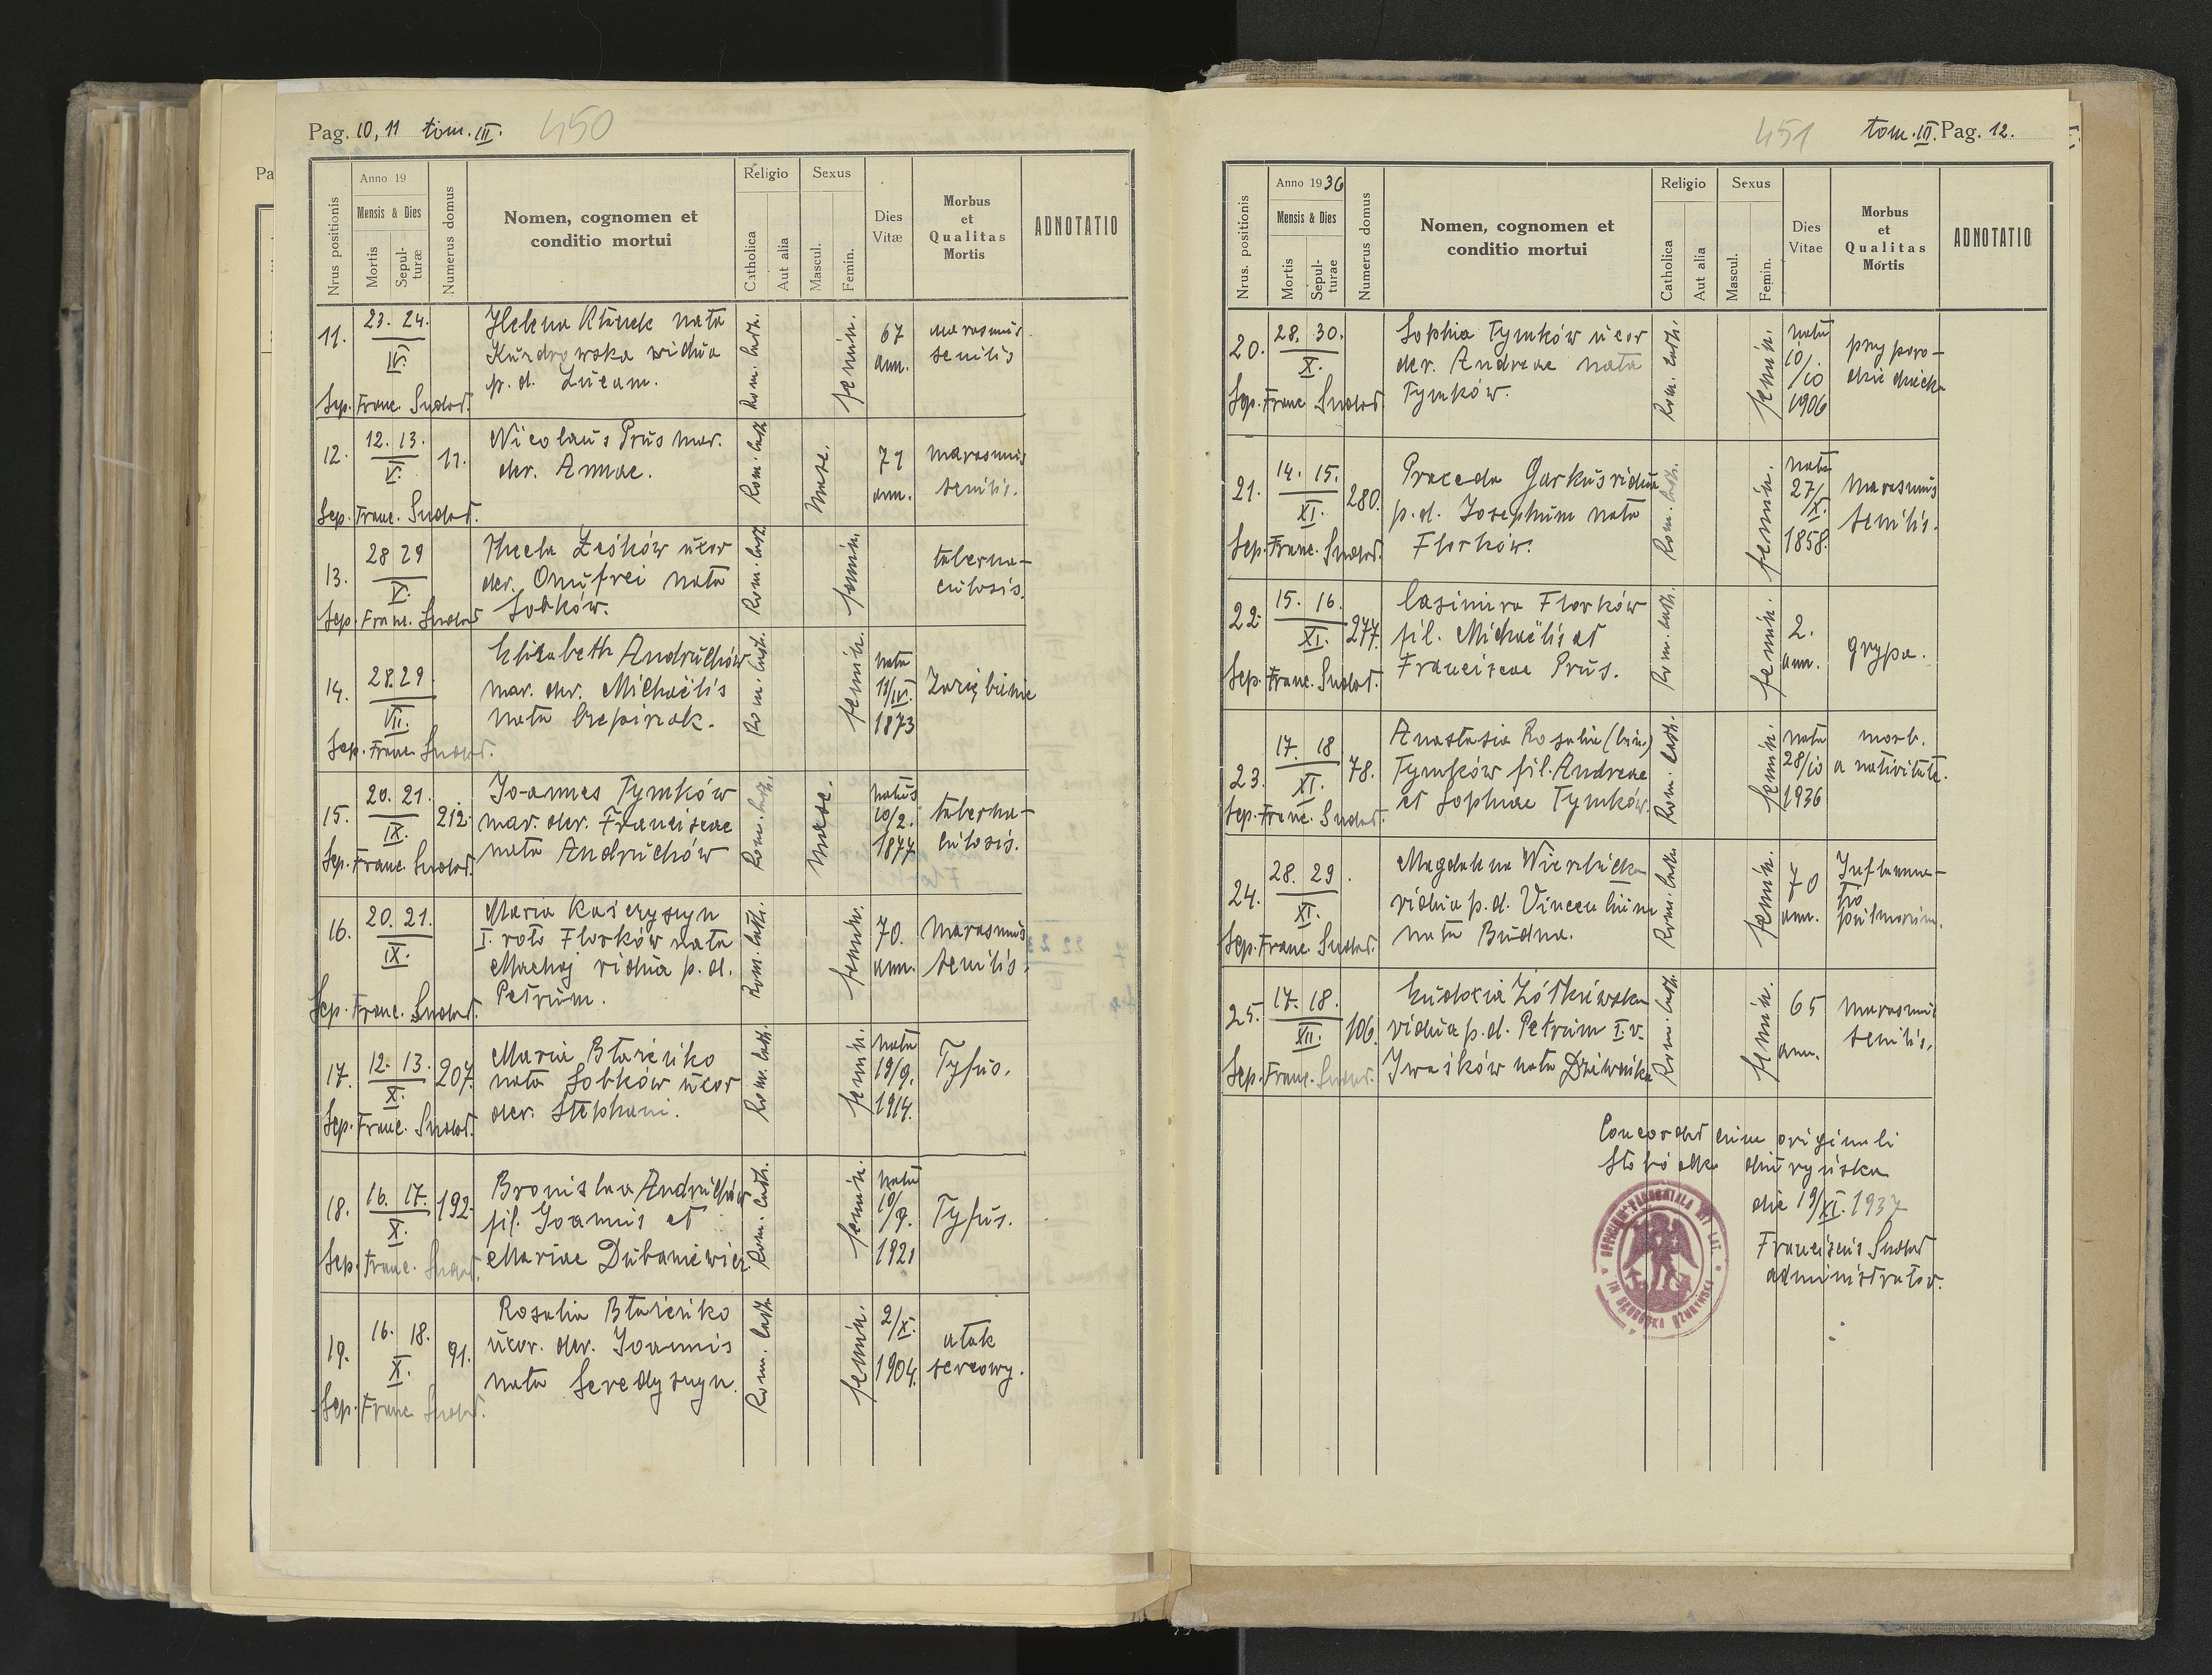 Pag. 10, 11 tom. III. 450
Anno 19
Religio
Sexus
Nrus positionis
Mensis & Dies
Mortis
Sepul-
turæ
Numerus domus
Nomen, cognomen et
conditio mortui
Catholica
Aut alia
Mascul.
Femin.
Dies
Vitæ
Morbus
et
Qualitas
Mortis
ADNOTATIO
11.
23. 24.
IV.
Sep. Franc. Sudoł.
Helena Kłauk nata
Kurdrowska vidua
p. d. Lucam.
Rom. Cath.
femin.
67
ann.
marasmus
senilis
12.
12. 13.
V.
11.
Sep. Franc. Sudoł.
Nicolaus Prus mar.
der. Annae.
Rom. Cath.
Masc.
71
ann.
marasmus
senilis.
13.
28 29
V.
Sep. Franc. Sudoł
Thecla Leśków uxor
der. Onufrei nata
Sobków.
Rom. Cath.
femin.
taberna-
culosis.
14.
28. 29
VII.
Sep. Franc. Sudoł.
Elisabeth Andruchów
mar. der. Michaëlis
nata Czepirak.
Rom. Cath.
femin.
nata
11/IV.
1873
Zaziębienie
15.
20. 21.
IX.
212.
Sep. Franc. Sudoł.
Joannes Tymków
mar. der. Franciscae
nata Andruchów
Rom. Cath.
Masc.
natus
10/2.
1877
taberna-
culosis.
16.
20. 21.
IX.
Sep. Franc. Sudoł.
Maria Kaseryszyn
I. voto Florków nata
Machaj vidua p. d.
Petrum.
Rom. Cath.
femin.
70.
ann.
Marasmus
senilis.
17.
12. 13.
X.
207.
Sep. Franc. Sudoł.
Maria Błażeńko
nata Sobków uxor
der. Stephani.
Rom. Cath.
femin.
nata
19/9.
1914.
Tyfus.
18.
16. 17.
X.
192.
Sep. Franc. Sudoł.
Bronislava Andruchów
fil. Joannis et
Mariae Dubaniewicz.
Rom. Cath.
femin.
nata
10/9.
1921
Tyfus.
19.
16. 18.
X.
91.
Sep. Franc Sudoł.
Rosalia Błażeńko
uxor. der. Joannis
nata Seredyszyn.
Rom. Cath.
femin.
2/X.
1904.
atak
sercowy.
451 tom. III. Pag. 12.
Anno 1936
Religio
Sexus
Nrus. positionis
Mensis & Dies
Mortis
Sepul-
turae
Numerus domus
Nomen, cognomen et
conditio mortui
Catholica
Aut alia
Mascul.
Femin.
Dies
Vitae
Morbus
et
Qualitas
Mortis
ADNOTATIO
20.
28. 30.
X.
Sep. Franc Sudoł.
Sophia Tymków uxor
der. Andreae nata
Tymków.
Rom. Cath.
femin.
nata
10/
/10
1906
przy poro-
dzie dziecka
21.
14. 15.
XI.
280.
Sep. Franc. Sudoł.
Praceda Garkus vidua
p. d. Josephum nata
Florków.
Rom. Cath.
femin.
nata
27/
X.
1858.
Marasmus
senilis.
22
15. 16.
XI.
277.
Sep. Franc. Sudoł.
Casimira Florków
fil. Michaëlis et
Franciscae Prus.
Rom. Cath.
femin.
2.
ann.
grypa.
23.
17. 18
XI.
78.
Sep. Franc. Sudoł.
Anastasia Rosalia (bin.)
Tymków fil. Andreae
et Sophiae Tymków.
Rom. Cath.
femin.
nata
28/10
1936
morb.
a nativitate.
24.
28. 29.
XI.
Sep. Franc. Sudoł.
Magdalena Wierzbicka
vidua p. d. Vincentium
nata Budna.
Rom. Cath.
femin.
70
ann.
Inflamma-
tio
pulmonum.
25.
17. 18.
XII.
106.
Sep. Franc. Sudoł.
Eudoxia Żółkiewska
vidua p. d. Petrum I. v.
Iwaśków nata Dziwnika
Rom. Cath.
femin.
65
ann.
Marasmus
senilis.
Concordat cum originali
Słobódka dżuryńska
die 19/XI. 1937
Franciscus Sudoł
administrator.
OFFICIUM PAROCHIALE RIT. LAT.
IN SŁOBÓDKA DŻURYŃSKA